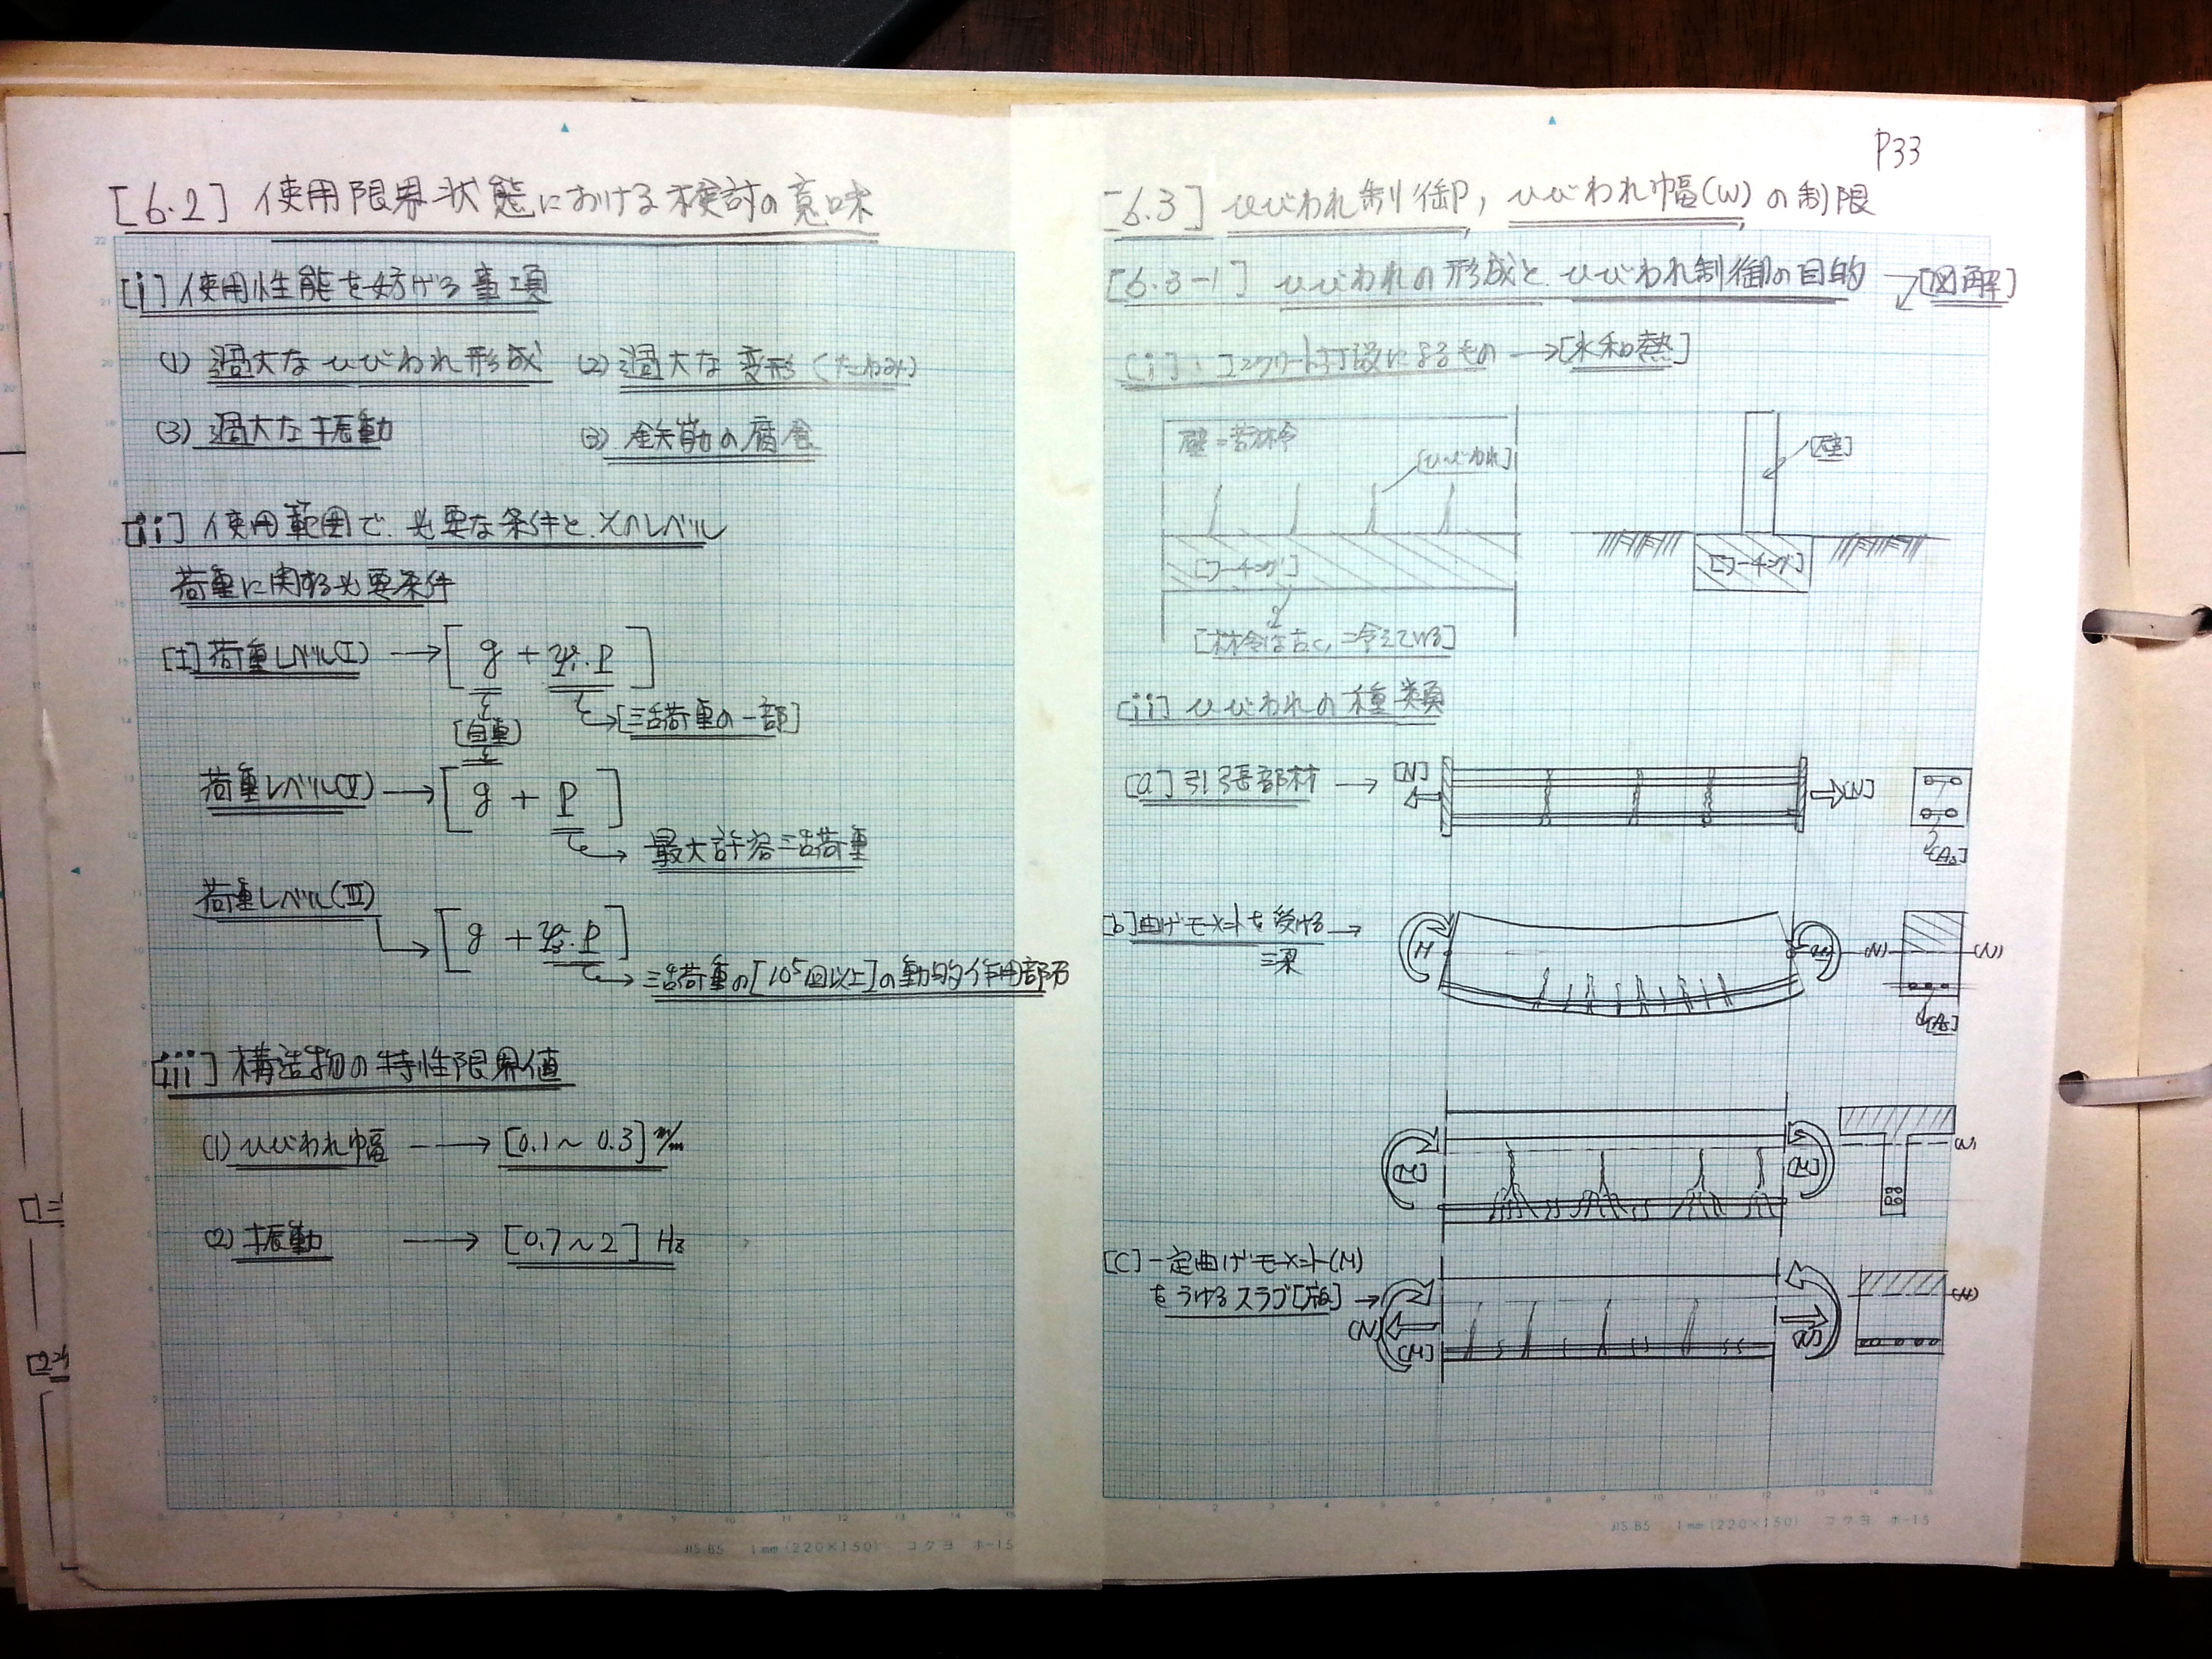 [6.2] 使用限界状態における検討の意味
[i] 使用性能を妨げる事項
(1) 過大なひびわれ形成 (2) 過大な変形 (たわみ)
(3) 過大な振動 (3) 鉄筋の腐食
[ii] 使用範囲で必要な条件と、そのレベル
荷重に関する必要条件
荷重レベル(I) → [g + ψ1・P]
[自重] → [活荷重の一部]
荷重レベル(II) → [g + P]
→ 最大許容活荷重
荷重レベル(III)
→ [g + ψ3・P]
→ 活荷重の[10⁵回以上]の動的作用部分
[iii] 構造物の特性限界値
(1) ひびわれ幅 → [0.1〜0.3] m/m
(2) 振動 → [0.7〜2] Hz
JIS B5 1mm (220×150) コクヨ ホ-15
P33
[6.3] ひびわれ制御, ひびわれ幅(W)の制限
[6.3-1] ひびわれの形成と ひびわれ制御の目的 → [図解]
[i]. コンクリート打設によるもの → [水和熱]
壁=若材令
[ひびわれ]
[壁]
[フーチング]
[フーチング]
[材令は古く, =冷えている]
[ii] ひびわれの種類
[a] 引張部材 → [N] [N]
[As]
[b] 曲げモーメントを受ける →
梁
M (N) (N)
[As]
[M] [M] (N)
[C] 一定曲げモーメント(M)
をうけるスラブ[版] →
(N) [M] (N)
JIS B5 1mm (220×150) コクヨ ホ-15